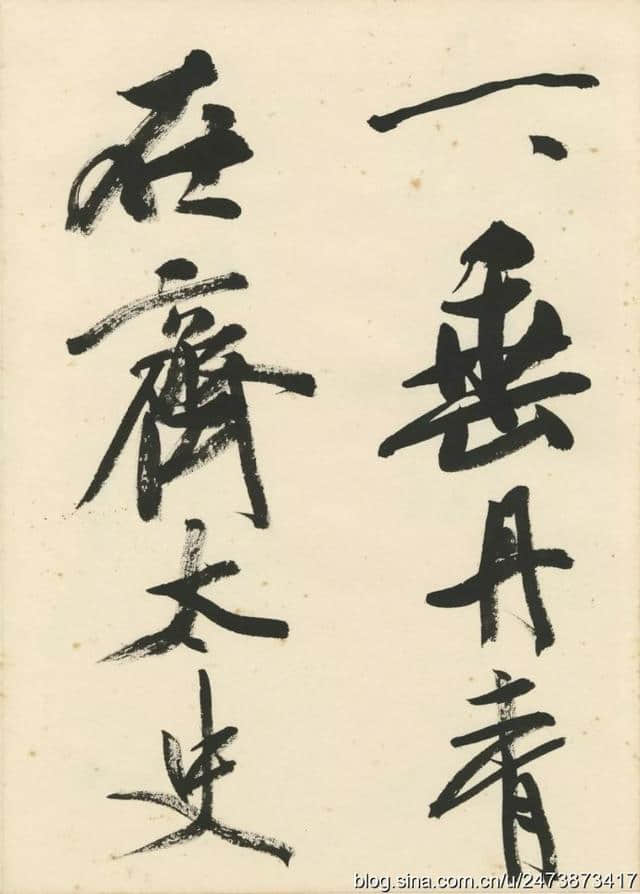 一、垂丹青
在齊太史
blog.sina.com.cn/u/2473873417